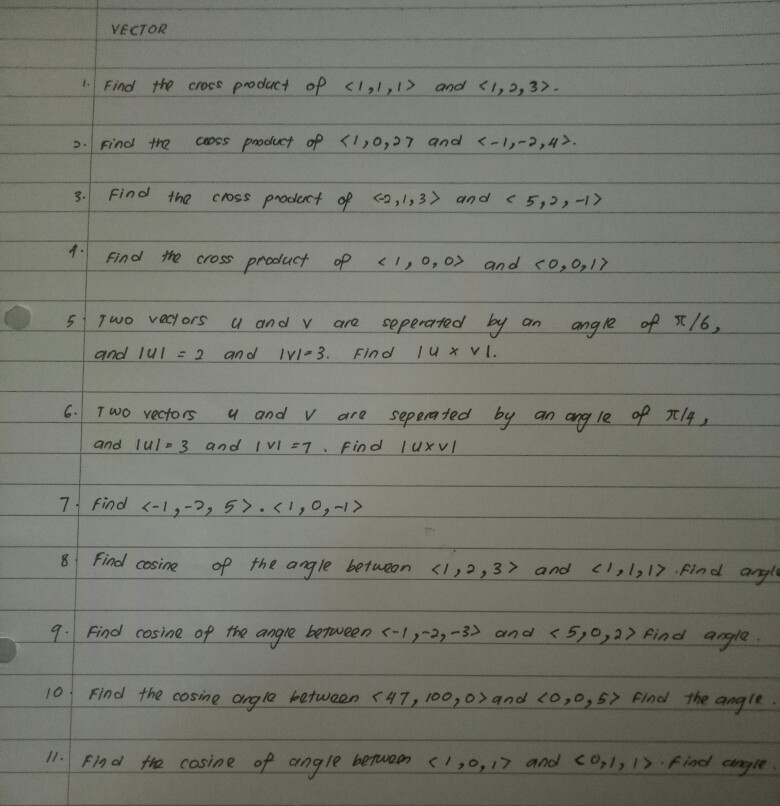 VECTOR
1. Find the cross product of <1,1,1> and <1,2,3>.
2. Find the cross product of <1,0,2> and <-1,-2,4>.
3. Find the cross product of <-2,1,3> and <5,2,-1>
4. Find the cross product of <1,0,0> and <0,0,1>
5. Two vectors u and v are seperated by an angle of π/6,
and |u| = 2 and |v|=3. Find |u x v|.
6. Two vectors u and v are seperated by an angle of π/4,
and |u|=3 and |v|=7. Find |uxv|
7. Find <-1,-2,5>.<1,0,-1>
8. Find cosine of the angle between <1,2,3> and <1,1,1>. Find angle
9. Find cosine of the angle between <-1,-2,-3> and <5,0,2> Find angle.
10. Find the cosine angle between <47,100,0> and <0,0,5> Find the angle.
11. Find the cosine of angle between <1,0,1> and <0,1,1>. Find angle.